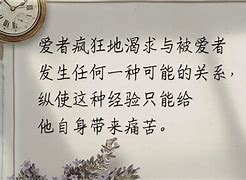 爱者疯狂地渴求与被爱者
发生任何一种可能的关系，
纵使这种经验只能给
他自身带来痛苦。